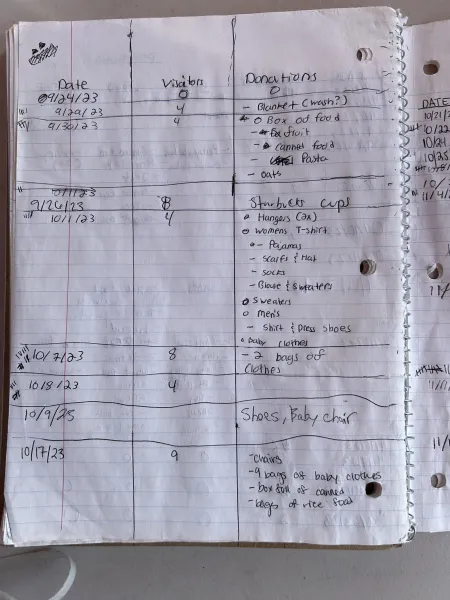 Date Visitors Donations
09/24/23 0 0
9/29/23 4 - Blanket (wash?)
9/30/23 4 o Box of food
- fruit
- canned food
- Pasta
- oats
10/1/23
9/26/23 8 Starbucks cups
10/1/23 4 o Hangers (2x)
o womens T-shirt
- Pajamas
- scarfs & Hat
- socks
- Blouse & sweaters
o sweaters
o men's
- Shirt & Dress shoes
o baby clothes
10/7/23 8 - 2 bags of
clothes
10/8/23 4
10/9/25 Shoes, Baby chair
10/17/23 9 - chairs
- 9 bags of baby clothes
- box full of canned
- bags of rice food
DATE
10/21/2
10/22
10/24
10/25
10/
11/4/2
11/
11/
11/1
11/1